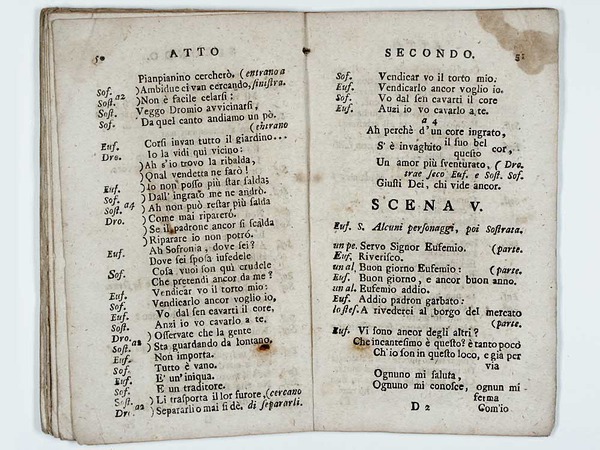 50 ATTO
Pianpianino cercherò. (entrano a
Sof. )Ambidue ci van cercando, sinistra.
Sost. a2 )Non è facile celarsi:
Sost. Veggo Dromio avvicinarsi,
Sof. Da quel canto andiamo un pò.
(entrano
Euf. Corsi invan tutto il giardino...
Dro. Io la vidi quì vicino:
)Ah s'io trovo la ribalda,
)Qual vendetta ne farò!
Euf. )Io non posso più star salda;
Sof. )Dall' ingrato me ne andrò.
Sost. a4 )Ah non può restar più salda
Dro. )Come mai riparerò.
)Se il padrone ancor si scalda
)Riparare io non potrò.
Euf. Ah Sofronia, dove sei?
Dove sei sposa infedele
Sof. Cosa vuoi son quì crudele
Che pretendi ancor da me?
Euf. Vendicar vo il torto mio:
Sof. Vendicarlo ancor voglio io,
Euf. Vo dal sen cavarti il core,
Sost. Anzi io vo cavarlo a te.
Dro. )Osservate che la gente
Sost. a2 )Sta guardando da lontano.
Euf. Non importa.
Sof. Tutto è vano.
Euf. E' un' iniqua.
Sof. E un traditore.
Sost. )Li trasporta il lor furore, (cercano
Dro. a2 )Separarli o mai si dè. di separarli.
SECONDO. 51
Sof. Vendicar vo il torto mio.
Euf. Vendicarlo ancor voglio io.
Sof. Vo dal sen cavarti il core
Euf. Anzi io vo cavarlo a te.
a 4
Ah perchè d'un core ingrato,
S' è invaghito il suo bel cor,
questo
Un amor più sventurato, (Dro.
trae seco Euf. e Sost. Sof.
Giusti Dei, chi vide ancor.
SCENA V.
Euf. S. Alcuni personaggi, poi Sostrata.
un pe. Servo Signor Eufemio. (parte.
Euf. Riverisco.
un al. Buon giorno Eufemio: (parte.
Euf. Buon giorno, e ancor buon anno.
un al. Eufemio addio.
Euf. Addio padron garbato:
lo stes. A rivederci al borgo del mercato
(parte.
Euf. Vi sono ancor degli altri?
Che incantesimo è questo? è tanto poco
Ch'io son in questo loco, e già per
via
Ognuno mi saluta,
Ognuno mi conosce, ognun mi
ferma
D 2 Com'io